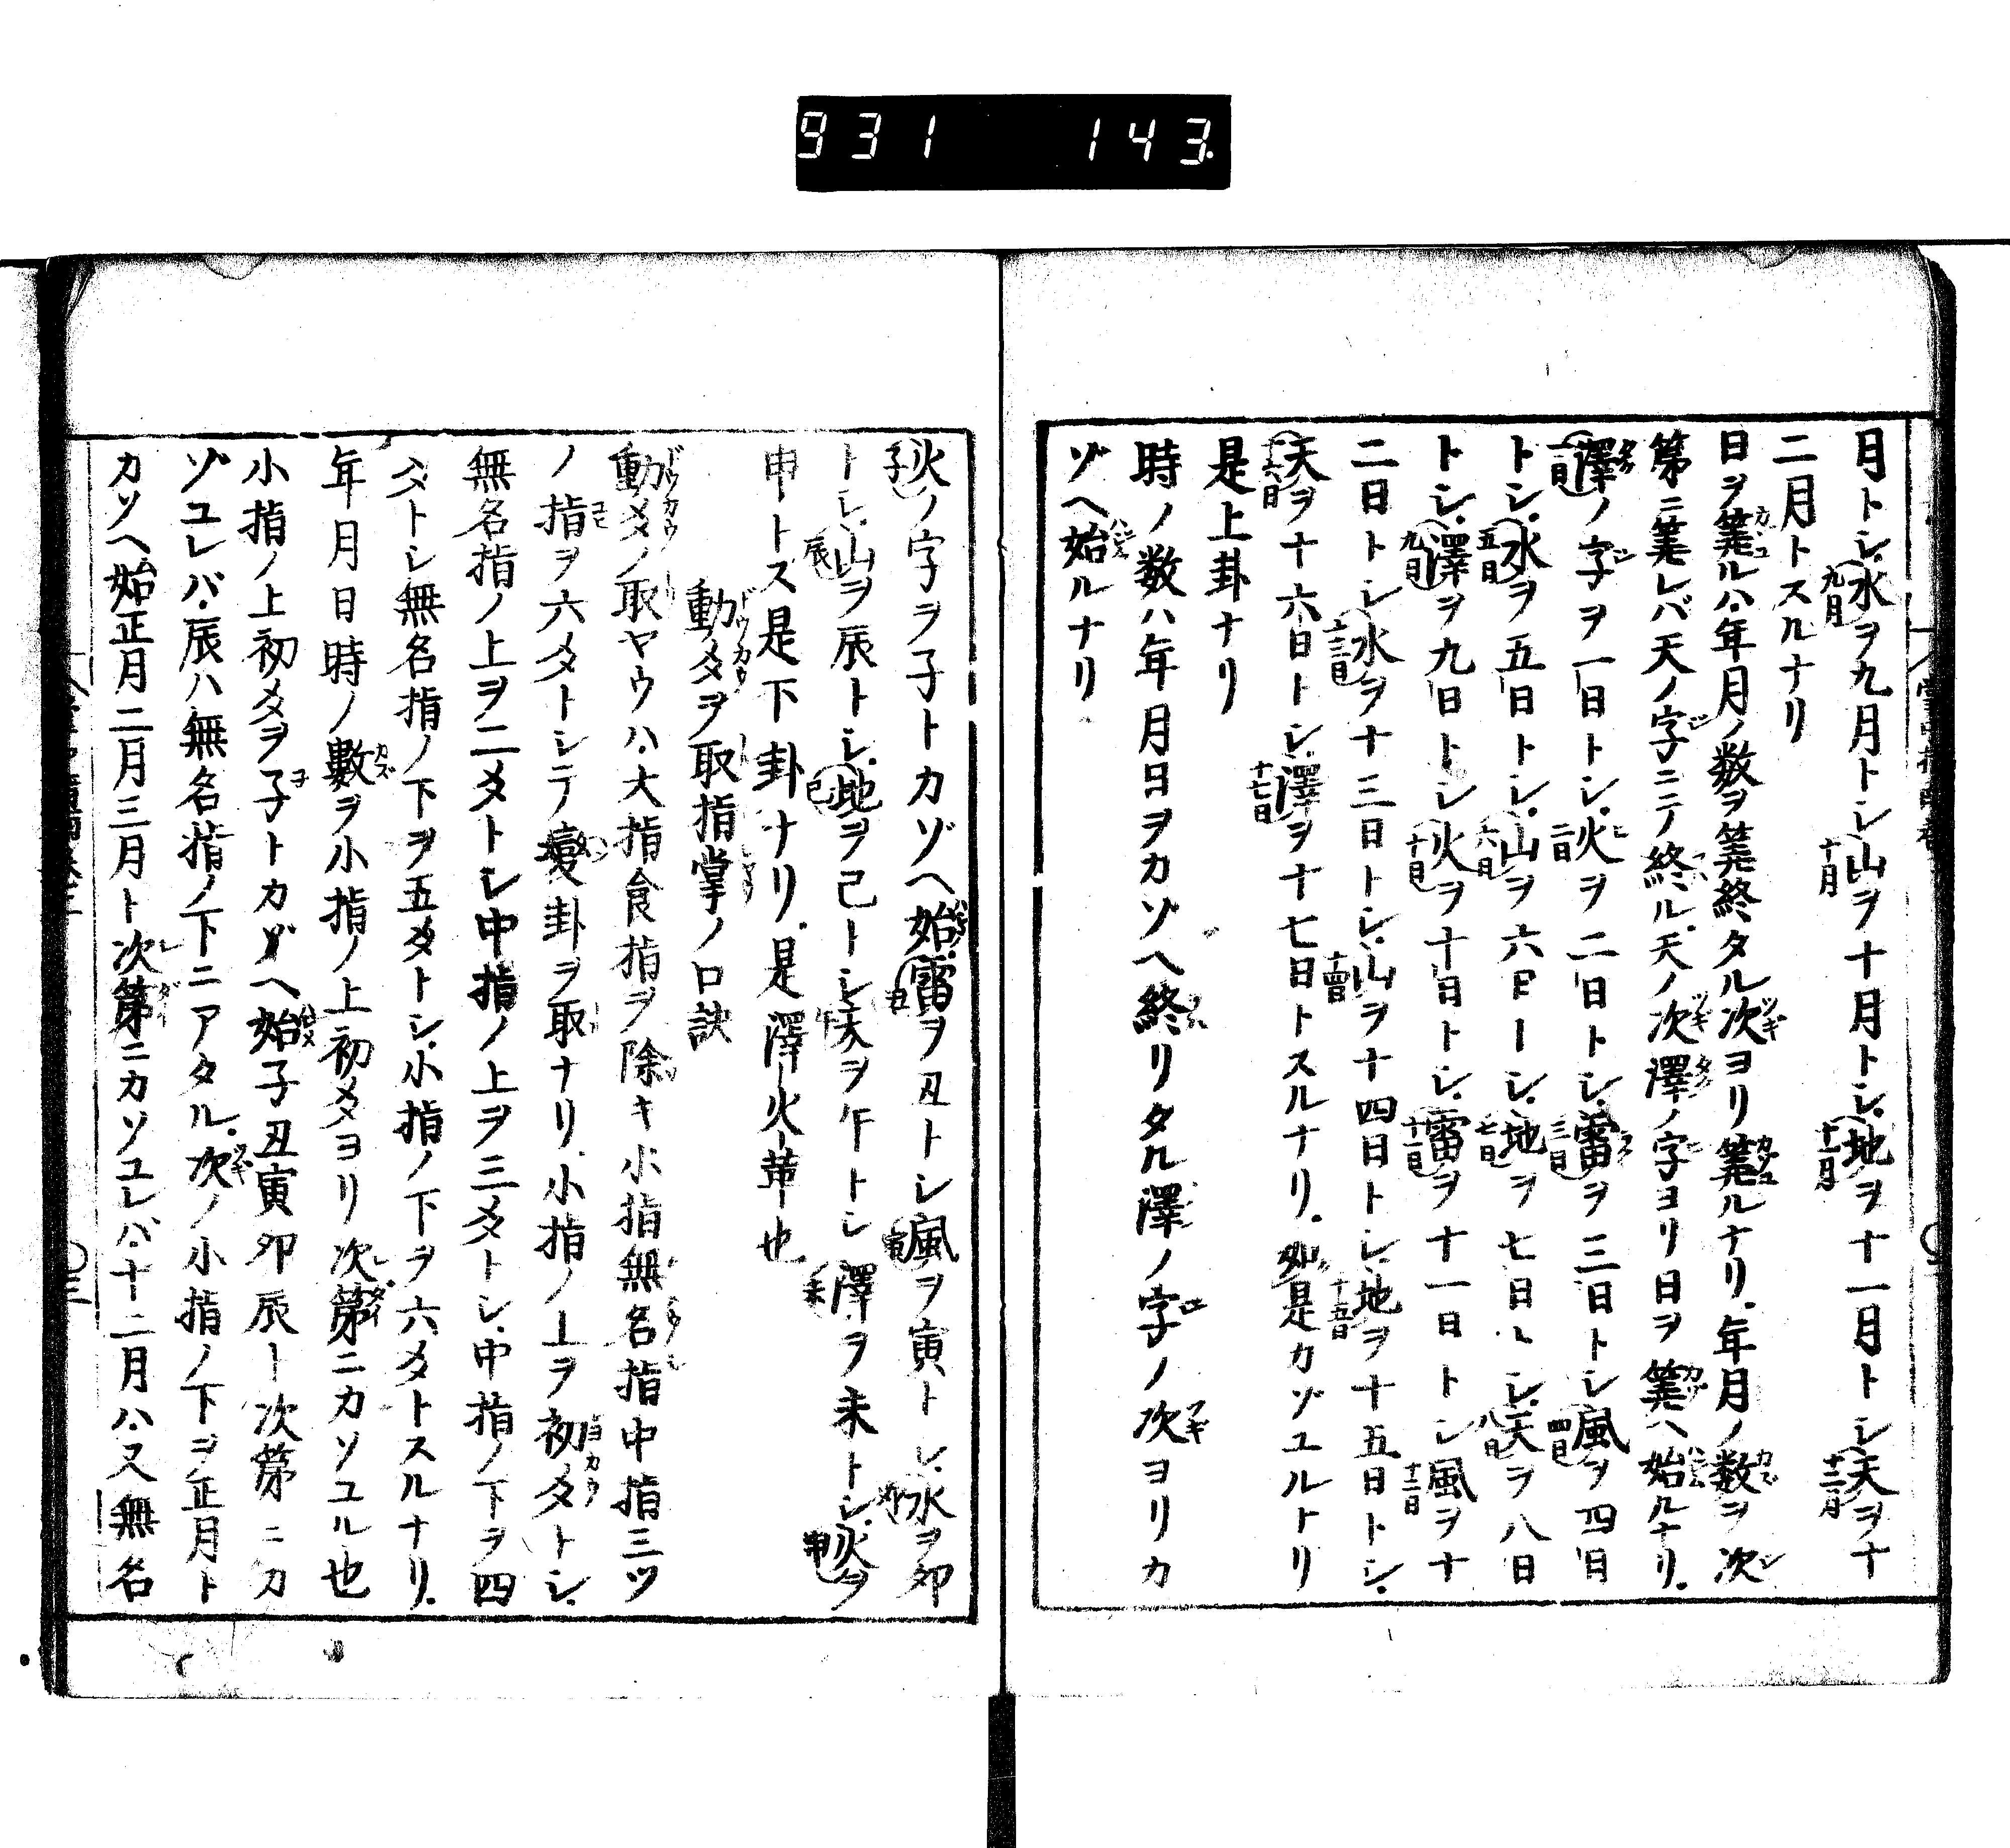 931 143.
月トシ水ヲ九月トシ山ヲ十月トシ地ヲ十一月トシ天ヲ十
二月トスルナリ
日ヲ筭ルハ年月ノ数ヲ筭終タル次ヨリ筭ルナリ年月ノ数ヲ次
第ニ筭レバ天ノ字ニテ終ル天ノ次澤ノ字ヨリ日ヲ筭ヘ始ルナリ
澤ノ字ヲ一日トシ火ヲ二日トシ雷ヲ三日トシ風ヲ四日
トシ水ヲ五日トシ山ヲ六日トシ地ヲ七日トシ天ヲ八日
トシ澤ヲ九日トシ火ヲ十日トシ雷ヲ十一日トシ風ヲ十
二日トシ水ヲ十三日トシ山ヲ十四日トシ地ヲ十五日トシ
天ヲ十六日トシ澤ヲ十七日トスルナリ如是カゾユルトリ
是上卦ナリ
時ノ数ハ年月日ヲカゾヘ終リタル澤ノ字ノ次ヨリカ
ゾヘ始ルナリ
火ノ字ヲ子トカゾヘ始雷ヲ丑トシ風ヲ寅トシ水ヲ卯
トシ山ヲ辰トシ地ヲ巳トシ天ヲ午トシ澤ヲ未トシ火ヲ
申トス是下卦ナリ是澤火革也
動爻ヲ取指掌ノ口訣
動爻ノ取ヤウハ大指食指ヲ除キ小指無名指中指三ツ
ノ指ヲ六爻トシテ變卦ヲ取ナリ小指ノ上ヲ初爻トシ
無名指ノ上ヲ二爻トシ中指ノ上ヲ三爻トシ中指ノ下ヲ四
爻トシ無名指ノ下ヲ五爻トシ小指ノ下ヲ六爻トスルナリ
年月日時ノ數ヲ小指ノ上初爻ヨリ次第ニカソユル也
小指ノ上初爻ヲ子トカゾヘ始子丑寅卯辰ト次第ニカ
ゾユレバ辰ハ無名指ノ下ニアタル次ノ小指ノ下ヲ正月ト
カソヘ始正月二月三月ト次第ニカソユレバ十二月ハ又無名